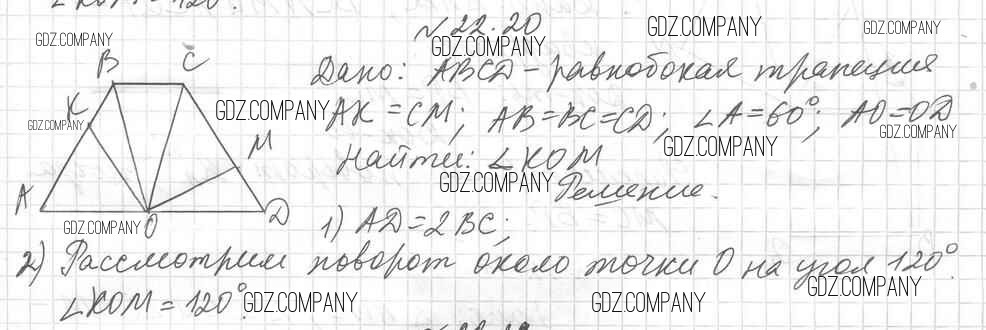 ∠KOM = 120°.
№22.20
Дано: ABCD - равнобокая трапеция
AK = CM; AB=BC=CD; ∠A=60°; AO=OD
Найти: ∠KOM
Решение.
1) AD=2BC;
2) Рассмотрим поворот около точки O на угол 120°.
∠KOM = 120°.
B C
K
M
A
O
D
GDZ.COMPANY
GDZ.COMPANY
GDZ.COMPANY
GDZ.COMPANY
GDZ.COMPANY
GDZ.COMPANY
GDZ.COMPANY
GDZ.COMPANY
GDZ.COMPANY
GDZ.COMPANY
GDZ.COMPANY
GDZ.COMPANY
GDZ.COMPANY